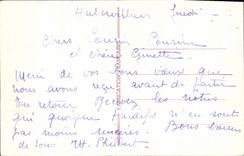 Aubervilliers Jeudi
Chers Cousin Cousine
et chère Ginette
Merci de vos bons vœux que
nous avons reçu avant de partir
En retour Recevez les nôtres
qui quoique tardifs n'en sont
pas moins sincères. Bons baisers
de tous